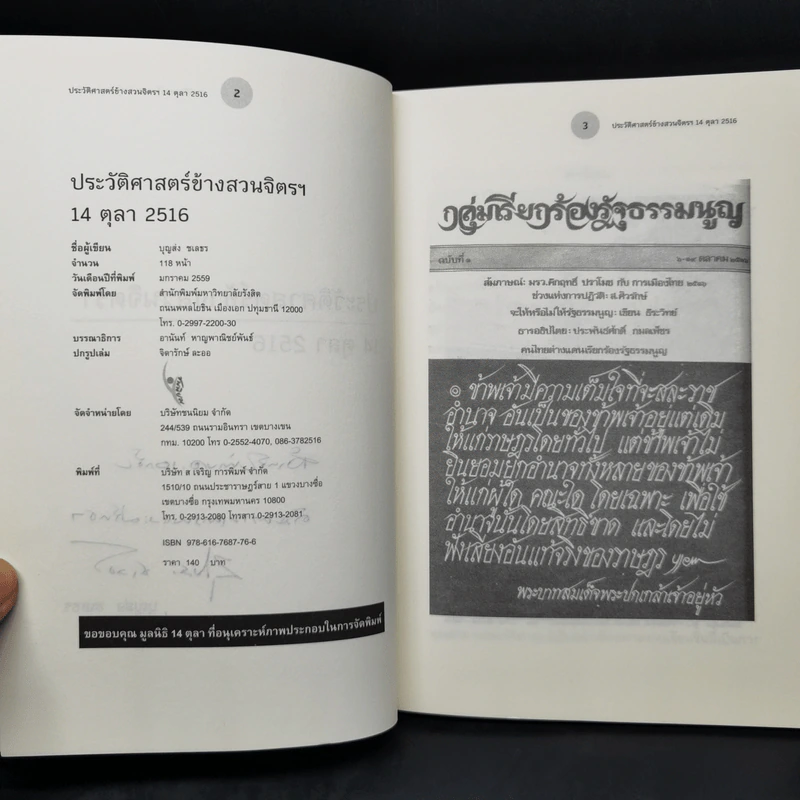 ประวัติศาสตร์ข้างสวนจิตรฯ 14 ตุลา 2516 2
ประวัติศาสตร์ข้างสวนจิตรฯ
14 ตุลา 2516
ชื่อผู้เขียน บุญส่ง ชเลธร
จำนวน 118 หน้า
วันเดือนปีที่พิมพ์ มกราคม 2559
จัดพิมพ์โดย สำนักพิมพ์มหาวิทยาลัยรังสิต
ถนนพหลโยธิน เมืองเอก ปทุมธานี 12000
โทร. 0-2997-2200-30
บรรณาธิการ อานันท์ หาญพาณิชย์พันธ์
ปกรูปเล่ม จิดารักษ์ ละออ
จัดจำหน่ายโดย บริษัทชนนิยม จำกัด
244/539 ถนนรามอินทรา เขตบางเขน
กทม. 10200 โทร 0-2552-4070, 086-3782516
พิมพ์ที่ บริษัท ส เจริญ การพิมพ์ จำกัด
1510/10 ถนนประชาราษฎร์สาย 1 แขวงบางซื่อ
เขตบางซื่อ กรุงเทพมหานคร 10800
โทร. 0-2913-2080 โทรสาร 0-2913-2081
ISBN 978-616-7687-76-6
ราคา 140 บาท
ขอขอบคุณ มูลนิธิ 14 ตุลา ที่อนุเคราะห์ภาพประกอบในการจัดพิมพ์
3 ประวัติศาสตร์ข้างสวนจิตรฯ 14 ตุลา 2516
กลุ่มเรียกร้องรัฐธรรมนูญ
ฉบับที่ ๑ ๖-๑๙ ตุลาคม ๒๕๑๖
สัมภาษณ์: มรว.คึกฤทธิ์ ปราโมช กับ การเมืองไทย ๒๕๑๖
ช่วงแห่งการปฏิวัติ: ส.ศิวรักษ์
จะให้หรือไม่ให้รัฐธรรมนูญ: เขียน ธีระวิทย์
อารยธิปไตย: ประพันธ์ศักดิ์ กมลเพ็ชร
คนไทยต่างแดนเรียกร้องรัฐธรรมนูญ
๏ ข้าพเจ้ามีความเต็มใจที่จะสละราช
อำนาจ อันเป็นของข้าพเจ้าอยู่แต่เดิม
ให้แก่ราษฎรโดยทั่วไป แต่ข้าพเจ้าไม่
ยินยอมยกอำนาจทั้งหลายของข้าพเจ้า
ให้แก่ผู้ใด คณะใด โดยเฉพาะ เพื่อใช้
อำนาจนั้นโดยสิทธิ์ขาด และโดยไม่
ฟังเสียงอันแท้จริงของราษฎร
พระบาทสมเด็จพระปกเกล้าเจ้าอยู่หัว